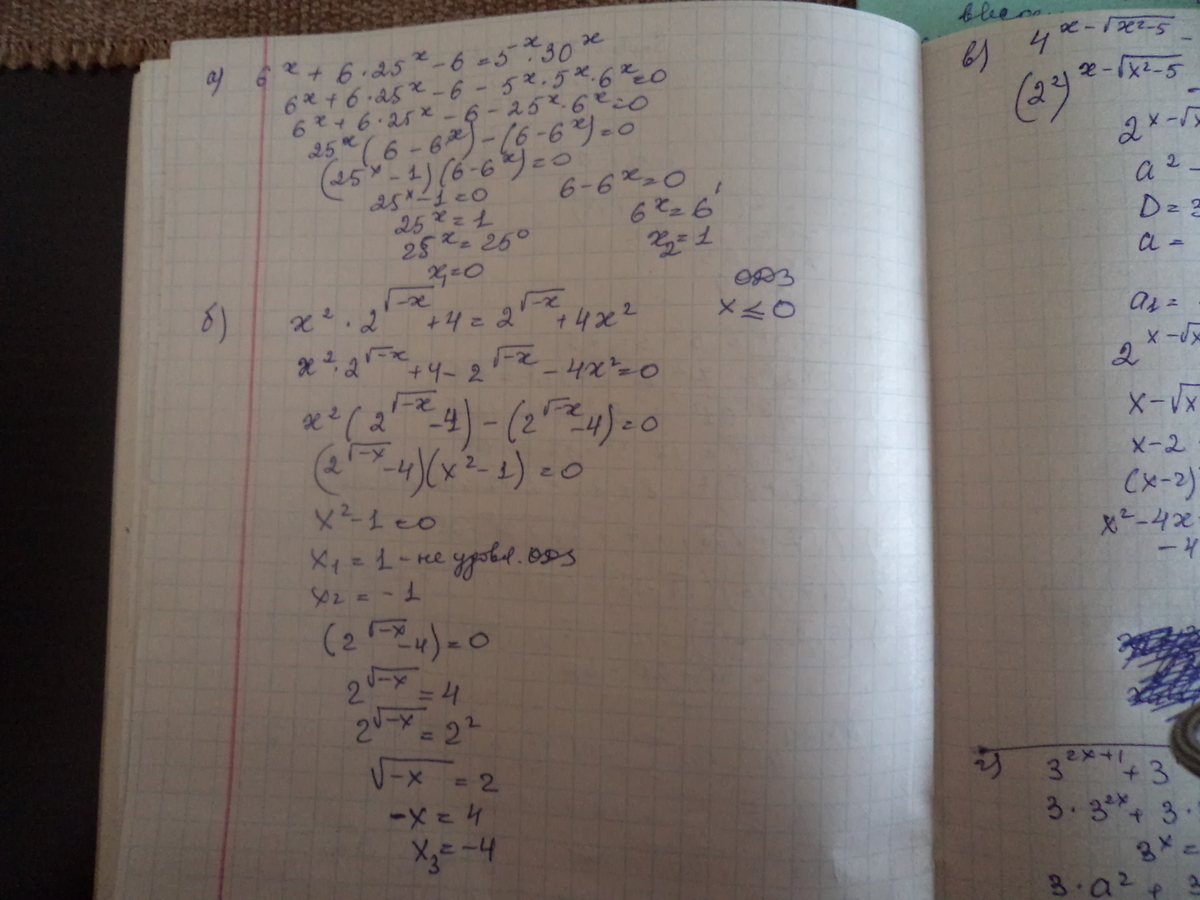 а) 6^x + 6·25^x - 6 = 5^x·30^x
6^x + 6·25^x - 6 - 5^x·5^x·6^x = 0
6^x + 6·25^x - 6 - 25^x·6^x = 0
25^x (6 - 6^x) - (6 - 6^x) = 0
(25^x - 1)(6 - 6^x) = 0
25^x - 1 = 0 6 - 6^x = 0
25^x = 1 6^x = 6^1
25^x = 25^0 x₂ = 1
x₁ = 0
ОДЗ
б) x²·2^√-x + 4 = 2^√-x + 4x² x ≤ 0
x²·2^√-x + 4 - 2^√-x - 4x² = 0
x² (2^√-x - 4) - (2^√-x - 4) = 0
(2^√-x - 4)(x² - 1) = 0
x² - 1 = 0
x₁ = 1 - не удовл. ОДЗ
x₂ = -1
(2^√-x - 4) = 0
2^√-x = 4
2^√-x = 2²
√-x = 2
-x = 4
x₃ = -4
в) 4^x-√x²-5 -
(2²)^x-√x²-5 -
2^x-√x
a² -
D = 3
a =
a₁ =
2^x-√x
x - √x
x - 2
(x-2)
x² - 4x
- 4
г) 3^2x+1 + 3
3·3^2x + 3·
3^x =
3·a² + 3